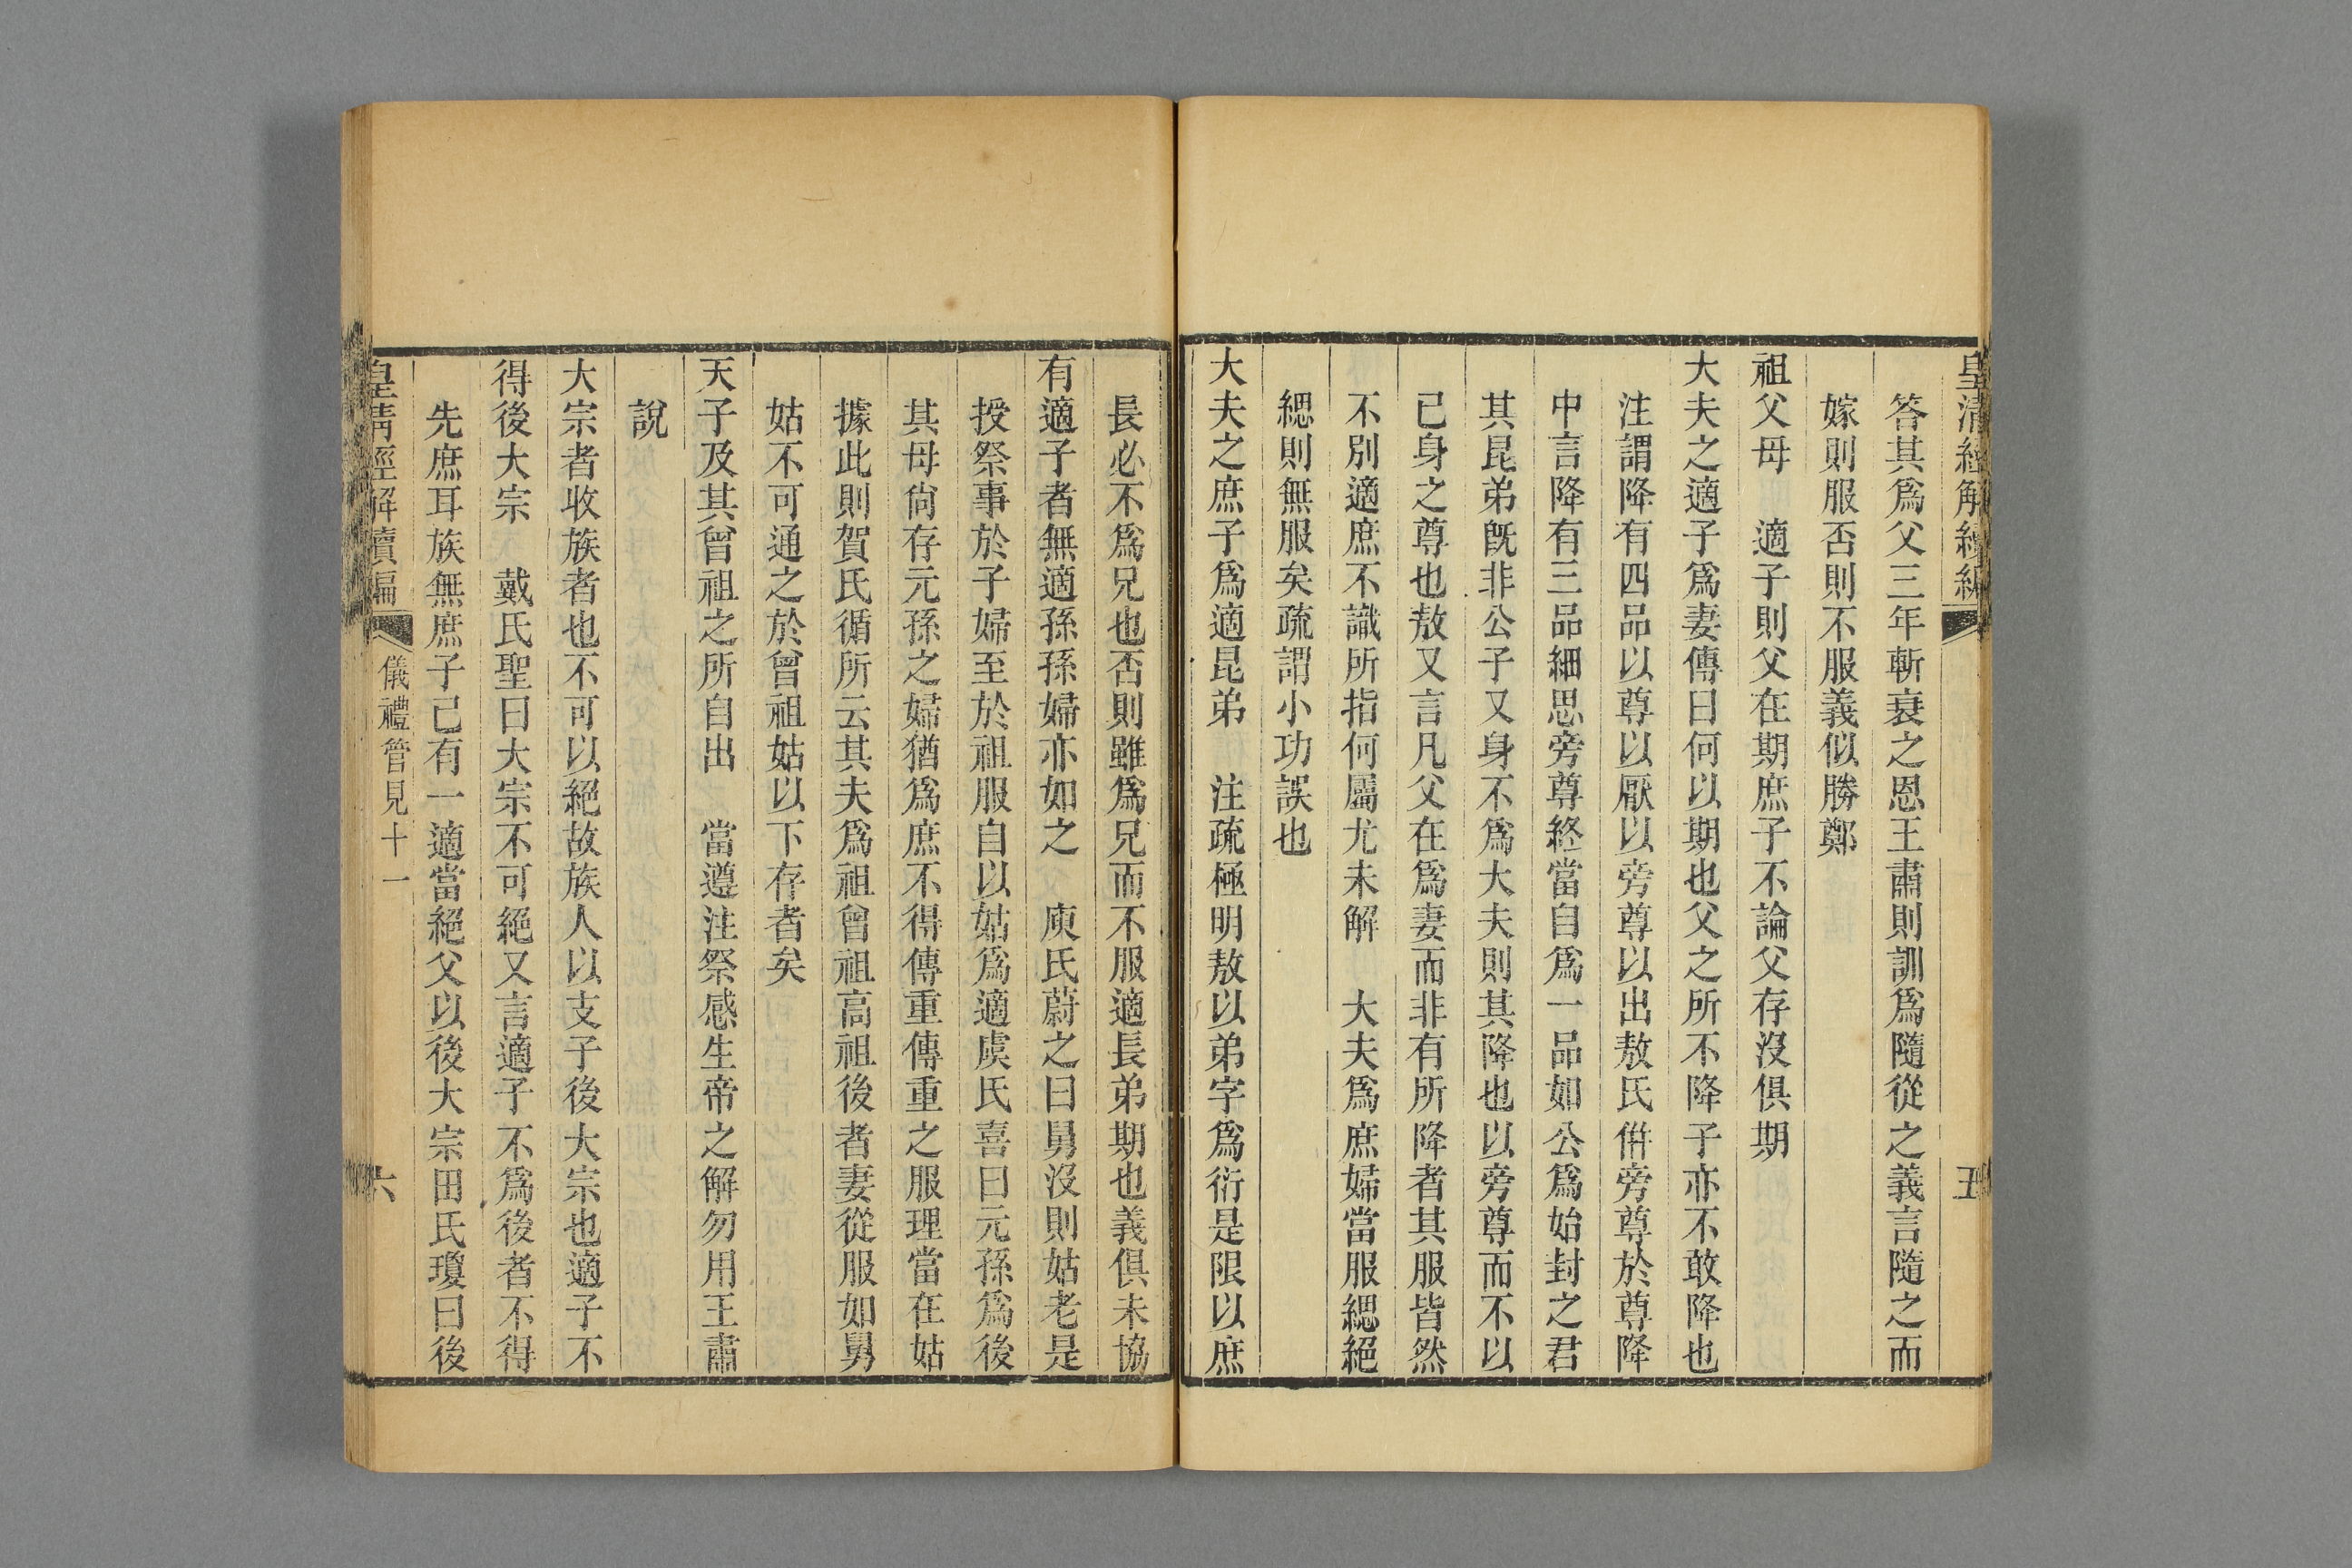 皇清經解續編
五
答其爲父三年斬衰之恩王肅則訓爲隨從之義言隨之而
嫁則服否則不服義似勝鄭
祖父母　適子則父在期庶子不論父存沒俱期
大夫之適子爲妻傳曰何以期也父之所不降子亦不敢降也
注謂降有四品以尊以厭以旁尊以出敖氏倂旁尊於尊降
中言降有三品細思旁尊終當自爲一品如公爲始封之君
其昆弟旣非公子又身不爲大夫則其降也以旁尊而不以
已身之尊也敖又言凡父在爲妻而非有所降者其服皆然
不別適庶不識所指何屬尤未解　大夫爲庶婦當服緦絕
緦則無服矣疏謂小功誤也
大夫之庶子爲適昆弟　注疏極明敖以弟字爲衍是限以庶
長必不爲兄也否則雖爲兄而不服適長弟期也義俱未協
有適子者無適孫孫婦亦如之　庾氏蔚之曰舅沒則姑老是
授祭事於子婦至於祖服自以姑爲適虞氏喜曰元孫爲後
其母尙存元孫之婦猶爲庶不得傳重傳重之服理當在姑
據此則賀氏循所云其夫爲祖曾祖高祖後者妻從服如舅
姑不可通之於曾祖姑以下存者矣
天子及其曾祖之所自出　當遵注祭感生帝之解勿用王肅
說
大宗者收族者也不可以絕故族人以支子後大宗也適子不
得後大宗　戴氏聖曰大宗不可絕又言適子不爲後者不得
先庶耳族無庶子己有一適當絕父以後大宗田氏瓊曰後
皇清經解續編
儀禮管見十一
六